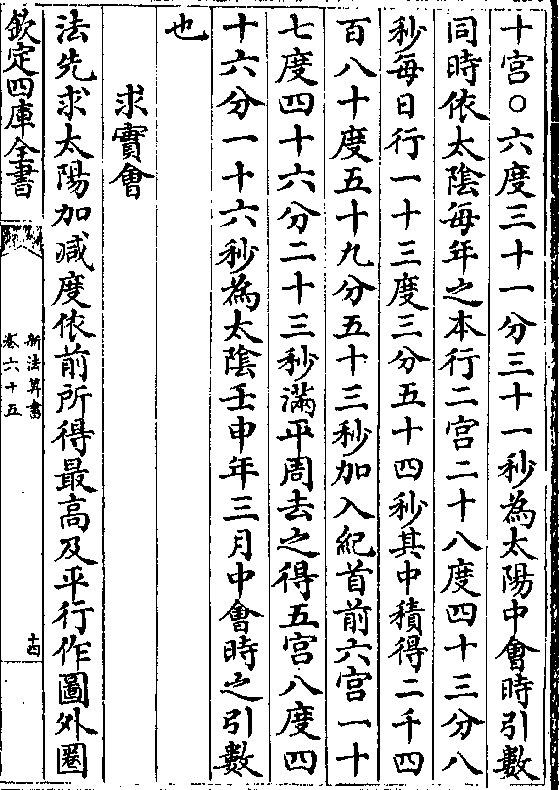 十宫○六度三十一分三十一秒為太陽中會時引數
同時依太陰每年之本行二宫二十八度四十三分八
秒每日行一十三度三分五十四秒其中積得二千四
百八十度五十九分五十三秒加入紀首前六宫一十
七度四十六分二十三秒滿平周去之得五宫八度四
十六分一十六秒為太陰壬申年三月中會時之引數
也
求實會
法先求太陽加減度依前所得最高及平行作圖外圈
欽定四庫全書
新法算書
卷六十五
十四